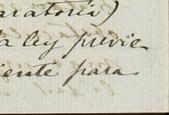 aratoria)
la ley previe-
iente para